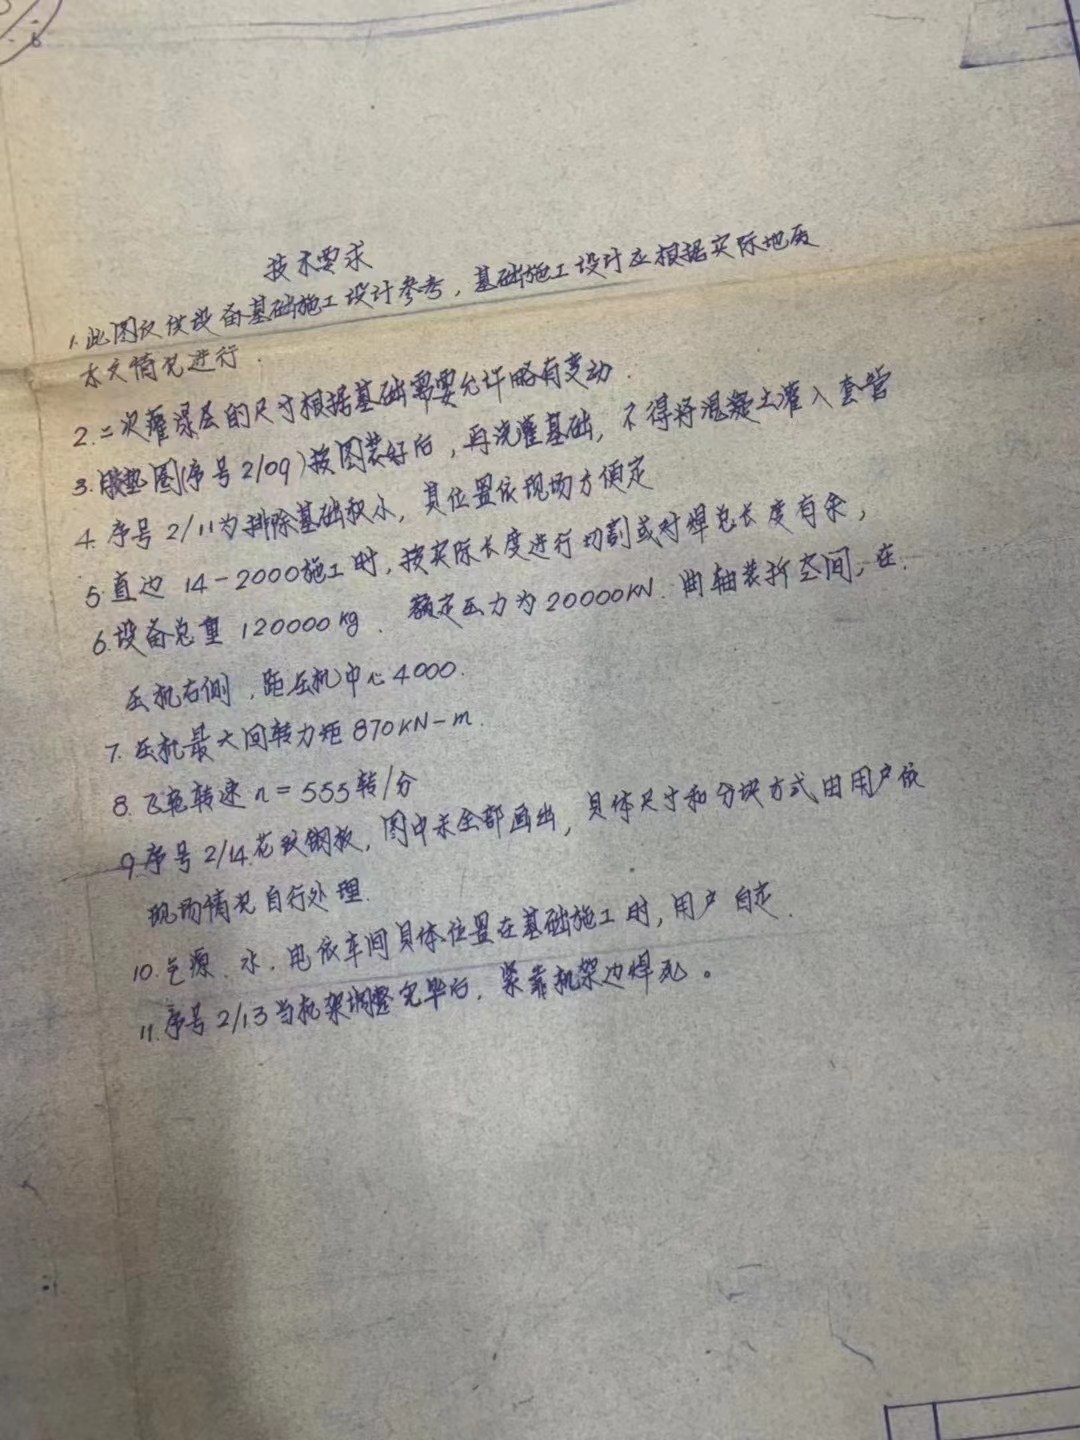 技术要求
1. 此图仅供设备基础施工设计参考，基础施工设计应根据实际地质
水文情况进行.
2. 二次灌浆层的尺寸根据基础需要允许略有变动.
3. 胶垫圈(序号2/09)按图装好后，再浇灌基础，不得将混凝土灌入套管
4. 序号2/11为排除基础积水，其位置依现场方便定
5. 直边 14-2000施工时，按实际长度进行切割或对焊总长度有余，
6. 设备总重 120000kg. 额定压力为20000KN. 曲轴装拆空间，在.
压机右侧，距压机中心4000.
7. 压机最大回转力矩870KN-m.
8. 飞轮转速 n=555转/分
9. 序号2/14.花纹钢板，图中未全部画出，具体尺寸和分块方式由用户依
现场情况自行处理.
10. 气源、水、电依车间具体位置在基础施工时，用户自定.
11. 序号2/13当机架调整完毕后，紧靠机架边焊死。